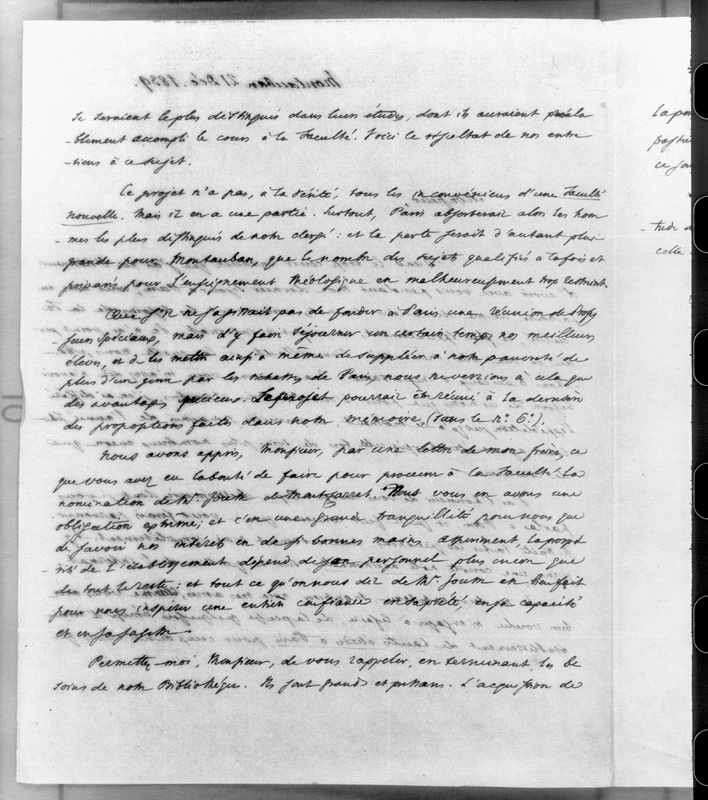 se seraient le plus distingués dans leurs études, dont ils auraient préala
-blement accompli le cours à la Faculté. Voici le résultat de nos entre
-tiens à ce sujet.
Ce projet n'a pas, à la vérité, tous les inconvéniens d'une Faculté
nouvelle. Mais il en a une partie. Surtout, Paris absorberait alors les hom
-mes les plus distingués de notre clergé: et la perte serait d'autant plus
grande pour Montauban, que le nombre des sujets qualifiés à la fois et
pour l'enseignement théologique est malheureusement trop restreint.
Que s'il ne s'agissait pas de fonder à Paris une réunion de Profes
-seurs spéciaux, mais d'y faire séjourner un certain temps nos meilleurs
élèves, et de les mettre ainsi à même de suppléer à notre pauvreté de
plus d'un genre par les richesses de Paris, nous ne verrions à cela que
des avantages précieux. Le projet pourrait être réuni à la dernière
des propositions faites dans notre mémoire (sous le n° 6°).
Nous avons appris, Monsieur, par une lettre de mon frère, ce
que vous avez eu la bonté de faire pour procurer à la Faculté la
nomination de Mr. Joum de Montbarret. Nous vous en avons une
obligation extrême; et c'est une grande tranquillité pour nous que
de savoir nos intérêts en de si bonnes mains. Assurément, la prospé
-rité de l'établissement dépend de son personnel plus encore que
de tout le reste: et tout ce qu'on nous dit de Mr. Joum est bien fait
pour nous inspirer une entière confiance en sa piété, en sa capacité
et en sa sagesse.
Permettez-moi, Monsieur, de vous rappeler, en terminant les be
soins de notre Bibliothèque. Ils sont grands et pressans. L'acquisition de